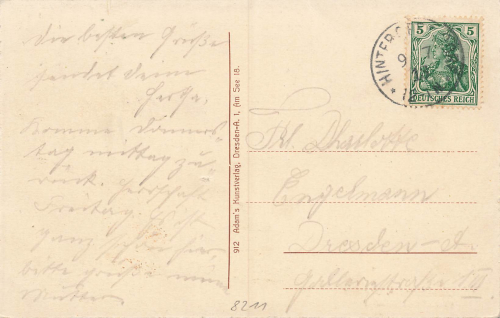 die besten Grüße
sendet deine
Hertha.
Komme Donners-
tag mittag zu-
rück.
Freitag. Es ist
ganz
bitte grüße meine
Mutter
912 Adam's Kunstverlag, Dresden-A. 1, Am See 18.
8211
HINTER
5 5
DEUTSCHES REICH
Frl. Charlotte
Engelmann
Dresden-A